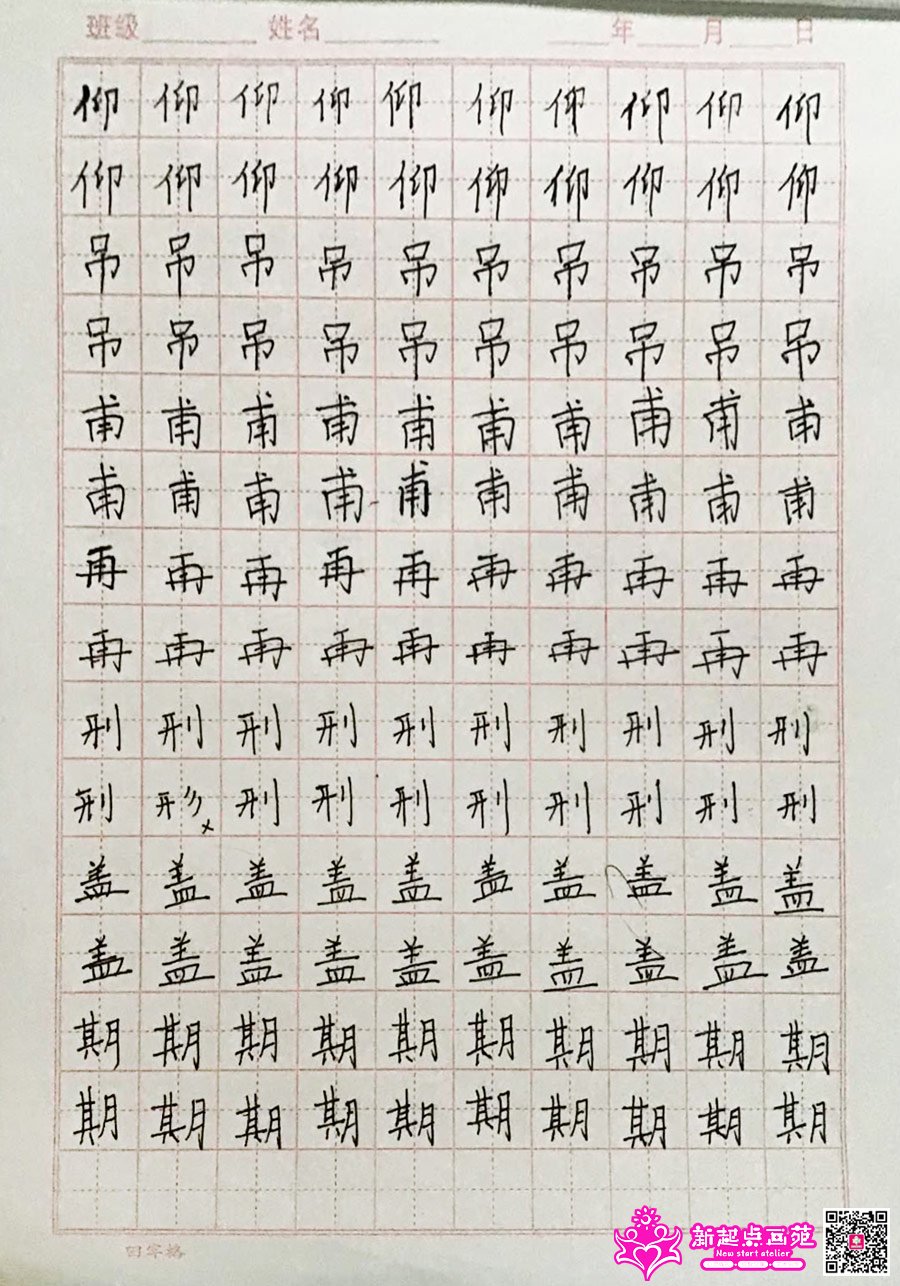 班级 姓名 年 月 日
仰 仰 仰 仰 仰 仰 仰 仰 仰 仰
仰 仰 仰 仰 仰 仰 仰 仰 仰 仰
吊 吊 吊 吊 吊 吊 吊 吊 吊 吊
吊 吊 吊 吊 吊 吊 吊 吊 吊 吊
甫 甫 甫 甫 甫 甫 甫 甫 甫 甫
甫 甫 甫 甫 甫 甫 甫 甫 甫 甫
再 再 再 再 再 再 再 再 再 再
再 再 再 再 再 再 再 再 再 再
刑 刑 刑 刑 刑 刑 刑 刑 刑 刑
刑 形 刑 刑 刑 刑 刑 刑 刑 刑
盖 盖 盖 盖 盖 盖 盖 盖 盖 盖
盖 盖 盖 盖 盖 盖 盖 盖 盖 盖
期 期 期 期 期 期 期 期 期 期
期 期 期 期 期 期 期 期 期 期
田字格
新起点画苑
New start atelier